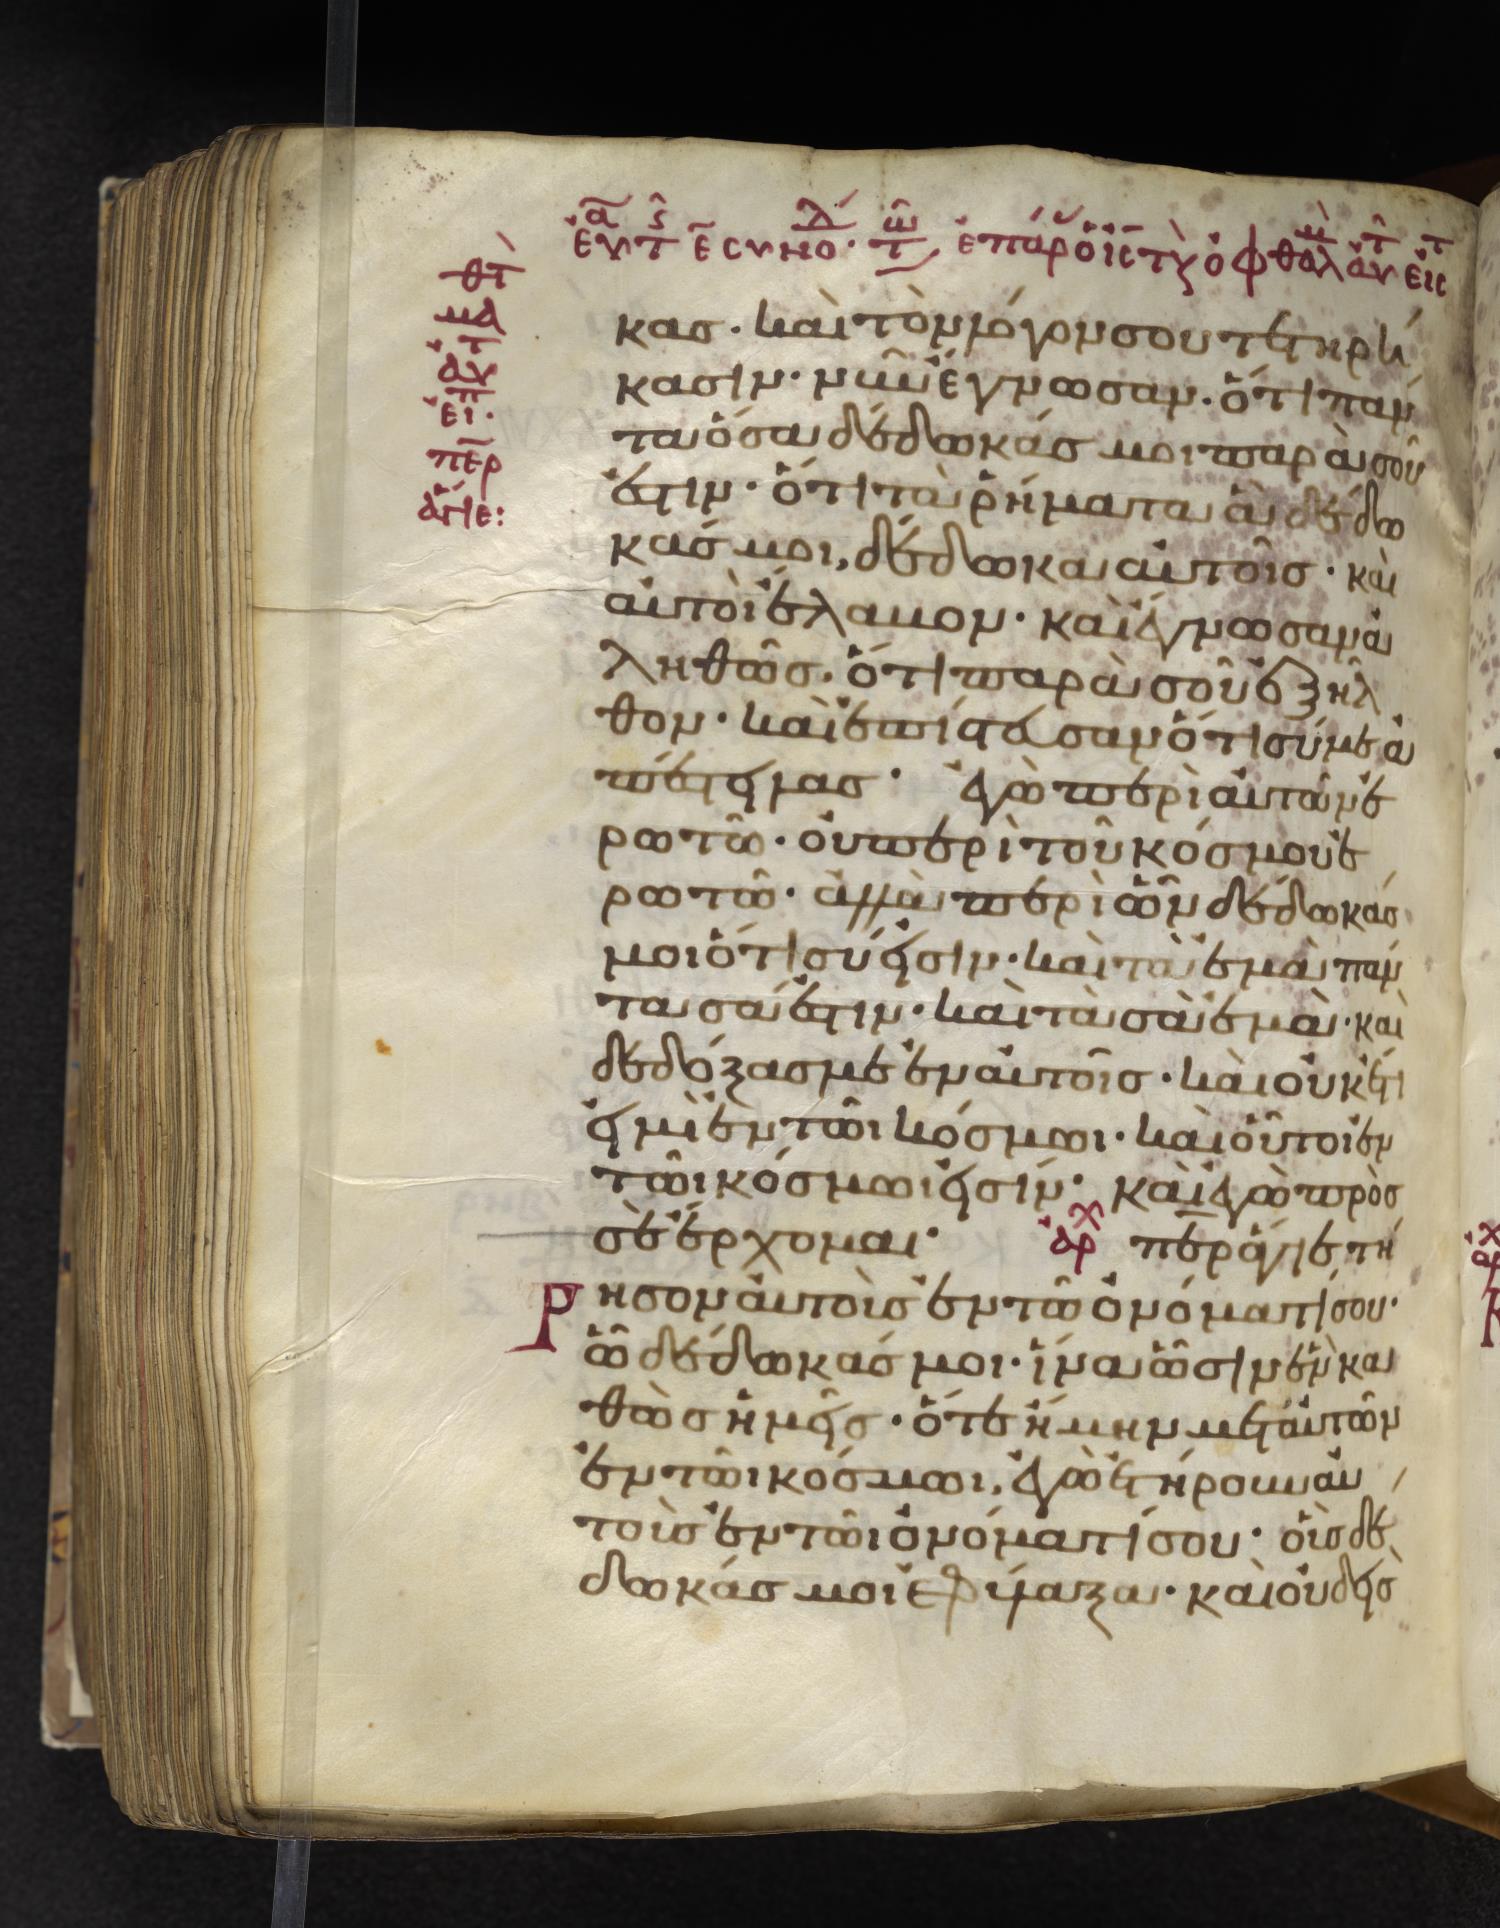 κασ· καὶ τὸν λόγον σου τετηρή
κασιν· νῦν ἔγνωσαν· ὅτι πάν
τα ὅσα δέδωκάσ μοι παρὰ σοῦ
ἐστιν· ὅτι τὰ ῥήματα ἃ δέδω
κάσ μοι, δέδωκα αὐτοῖσ· καὶ
αὐτοὶ ἔλαβον· καὶ ἔγνωσαν ἀ
ληθῶσ· ὅτι παρὰ σοῦ ἐξῆλ
θον· καὶ ἐπίστευσαν ὅτι σύ με ἀ
πέστειλασ· ἐγὼ περὶ αὐτῶν ἐ
ρωτῶ· οὐ περὶ τοῦ κόσμου ἐ
ρωτῶ· ἀλλὰ περὶ ὧν δέδωκάσ
μοι ὅτι σοί εἰσιν· καὶ τὰ ἐμὰ πάν
τα σά ἐστιν· καὶ τὰ σὰ ἐμὰ· καὶ
δεδόξασμαι ἐν αὐτοῖσ· καὶ οὐκέτι
εἰμὶ ἐν τῶι κόσμωι· καὶ οὗτοι ἐν
τῶι κόσμωι εἰσίν· καὶ ἐγὼ πρὸσ
σὲ ἔρχομαι· ἀρχ περ ἅγιε τή
Ρησον αὐτοὺσ ἐν τῶ ὀνόματί σου·
ὧ δέδωκάσ μοι· ἵνα ὦσιν ἓν κα
θὼσ ἡμεῖσ· ὅτε ἤμην μετ αὐτῶν
ἐν τῶι κόσμωι, ἐγὼ ἐτήρουν αὐ
τοὺσ ἐν τῶι ὀνόματί σου· οὓσ δέ
δωκάσ μοι ἐφύλαξα· καὶ οὐδεὶσ